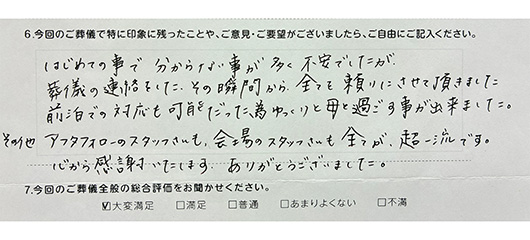 6.今回のご葬儀で特に印象に残ったことや、ご意見・ご要望がございましたら、ご自由にご記入ください。
はじめての事で 分からない事が 多く 不安でしたが、
葬儀の連絡をした、その瞬間から、全てを 頼りにさせて頂きました
前泊での 対応も 可能だった為 ゆっくりと 母と 過ごす事が 出来ました。
その他 アフタフォローのスタッフさんも、会場のスタッフさんも 全てが、超一流です。
心から 感謝いたします。 ありがとうございました。
7.今回のご葬儀全般の総合評価をお聞かせください。
☑大変満足 □満足 □普通 □あまりよくない □不満